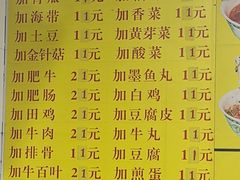 加海带 11元 加香菜 11元
加土豆 11元 加黄芽菜 11元
加金针菇 11元 加酸菜 11元
加肥牛 21元 加墨鱼丸 11元
加肥肠 21元 加白鸡 11元
加田鸡 21元 加豆腐皮 11元
加牛肉 21元 加牛丸 11元
加排骨 11元 加豆腐 11元
加牛百叶 21元 加煎蛋 11元